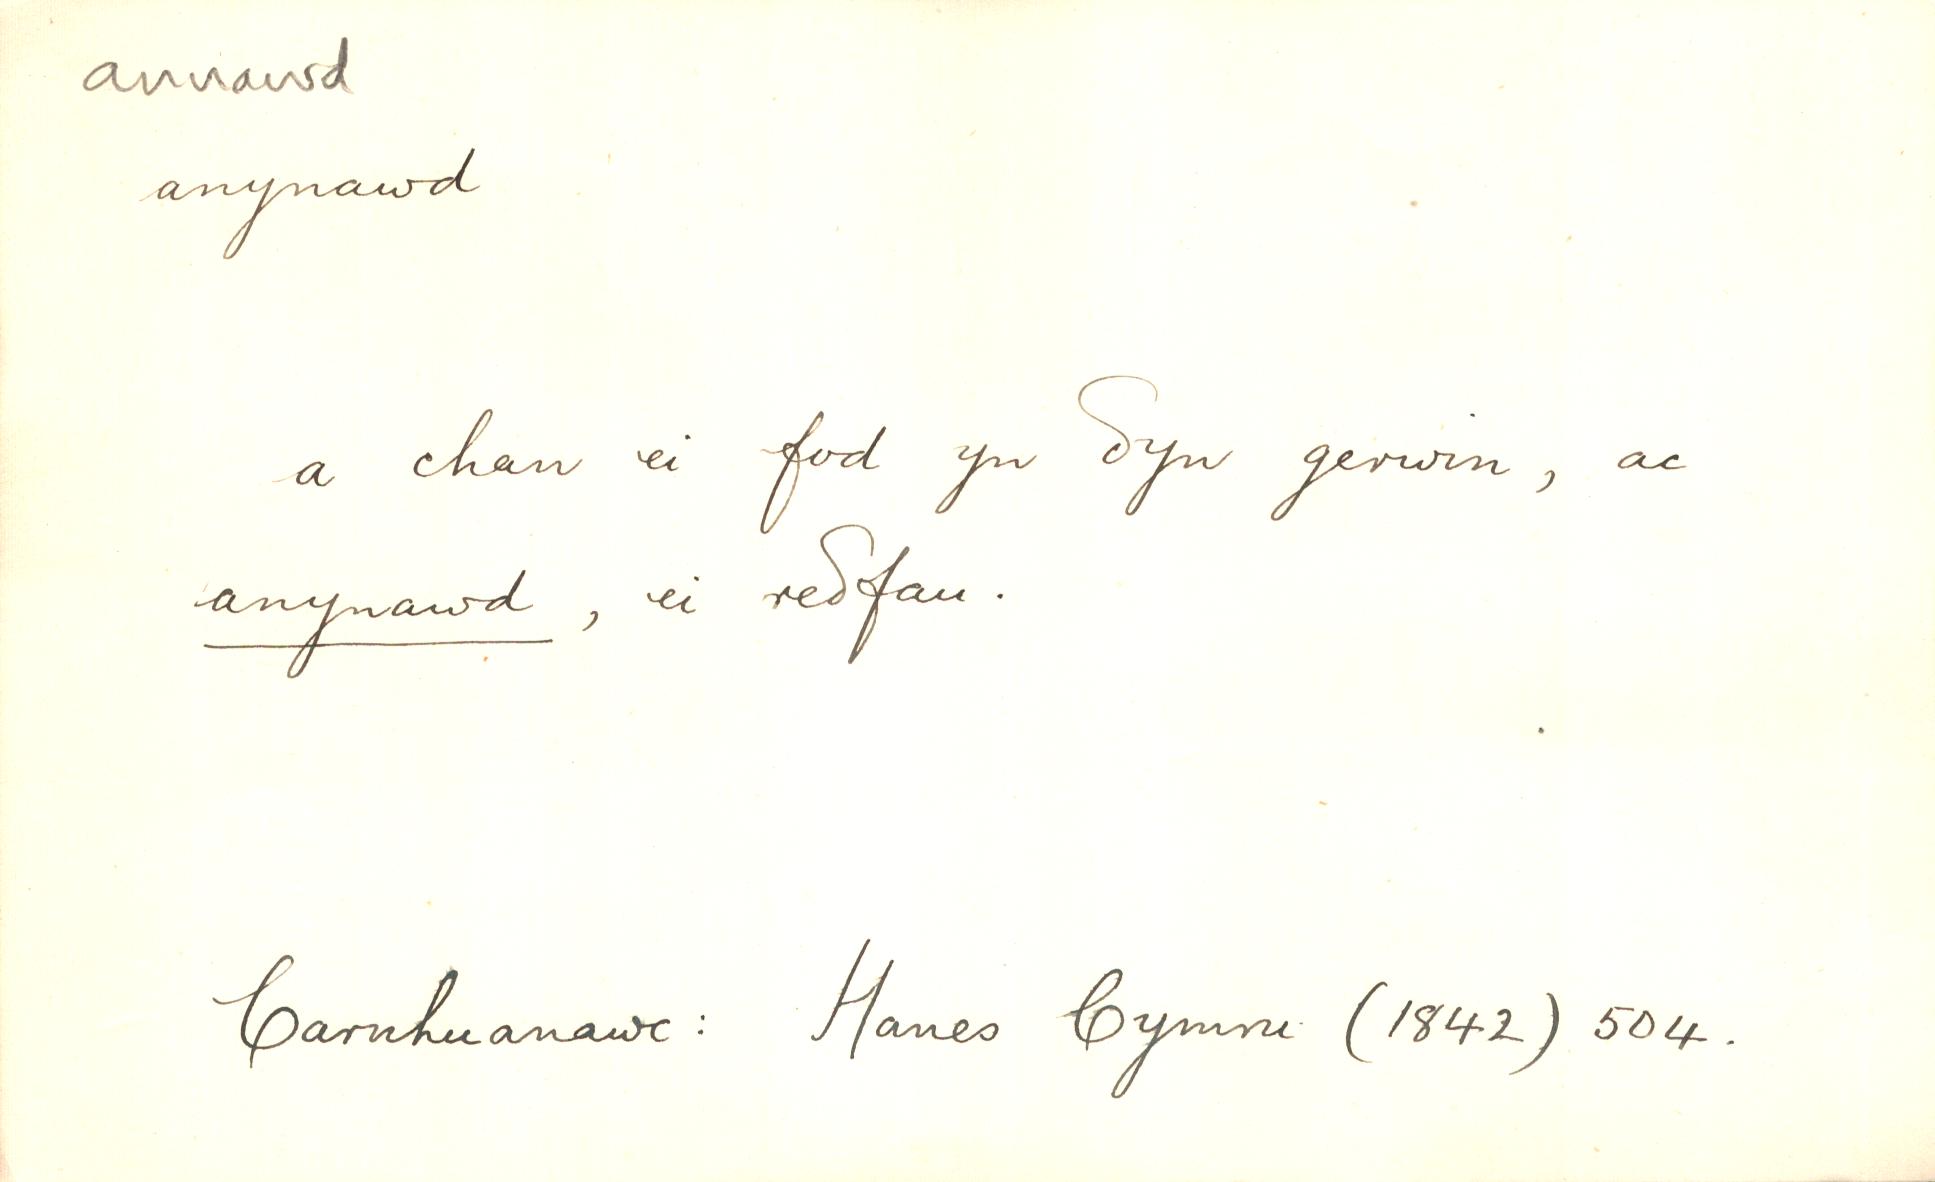 annawd
anynawd
a chan ei fod yn δyn gerwin, ac
anynawd, ei reδfau.
Carnhuanawc: Hanes Cymru (1842) 504.